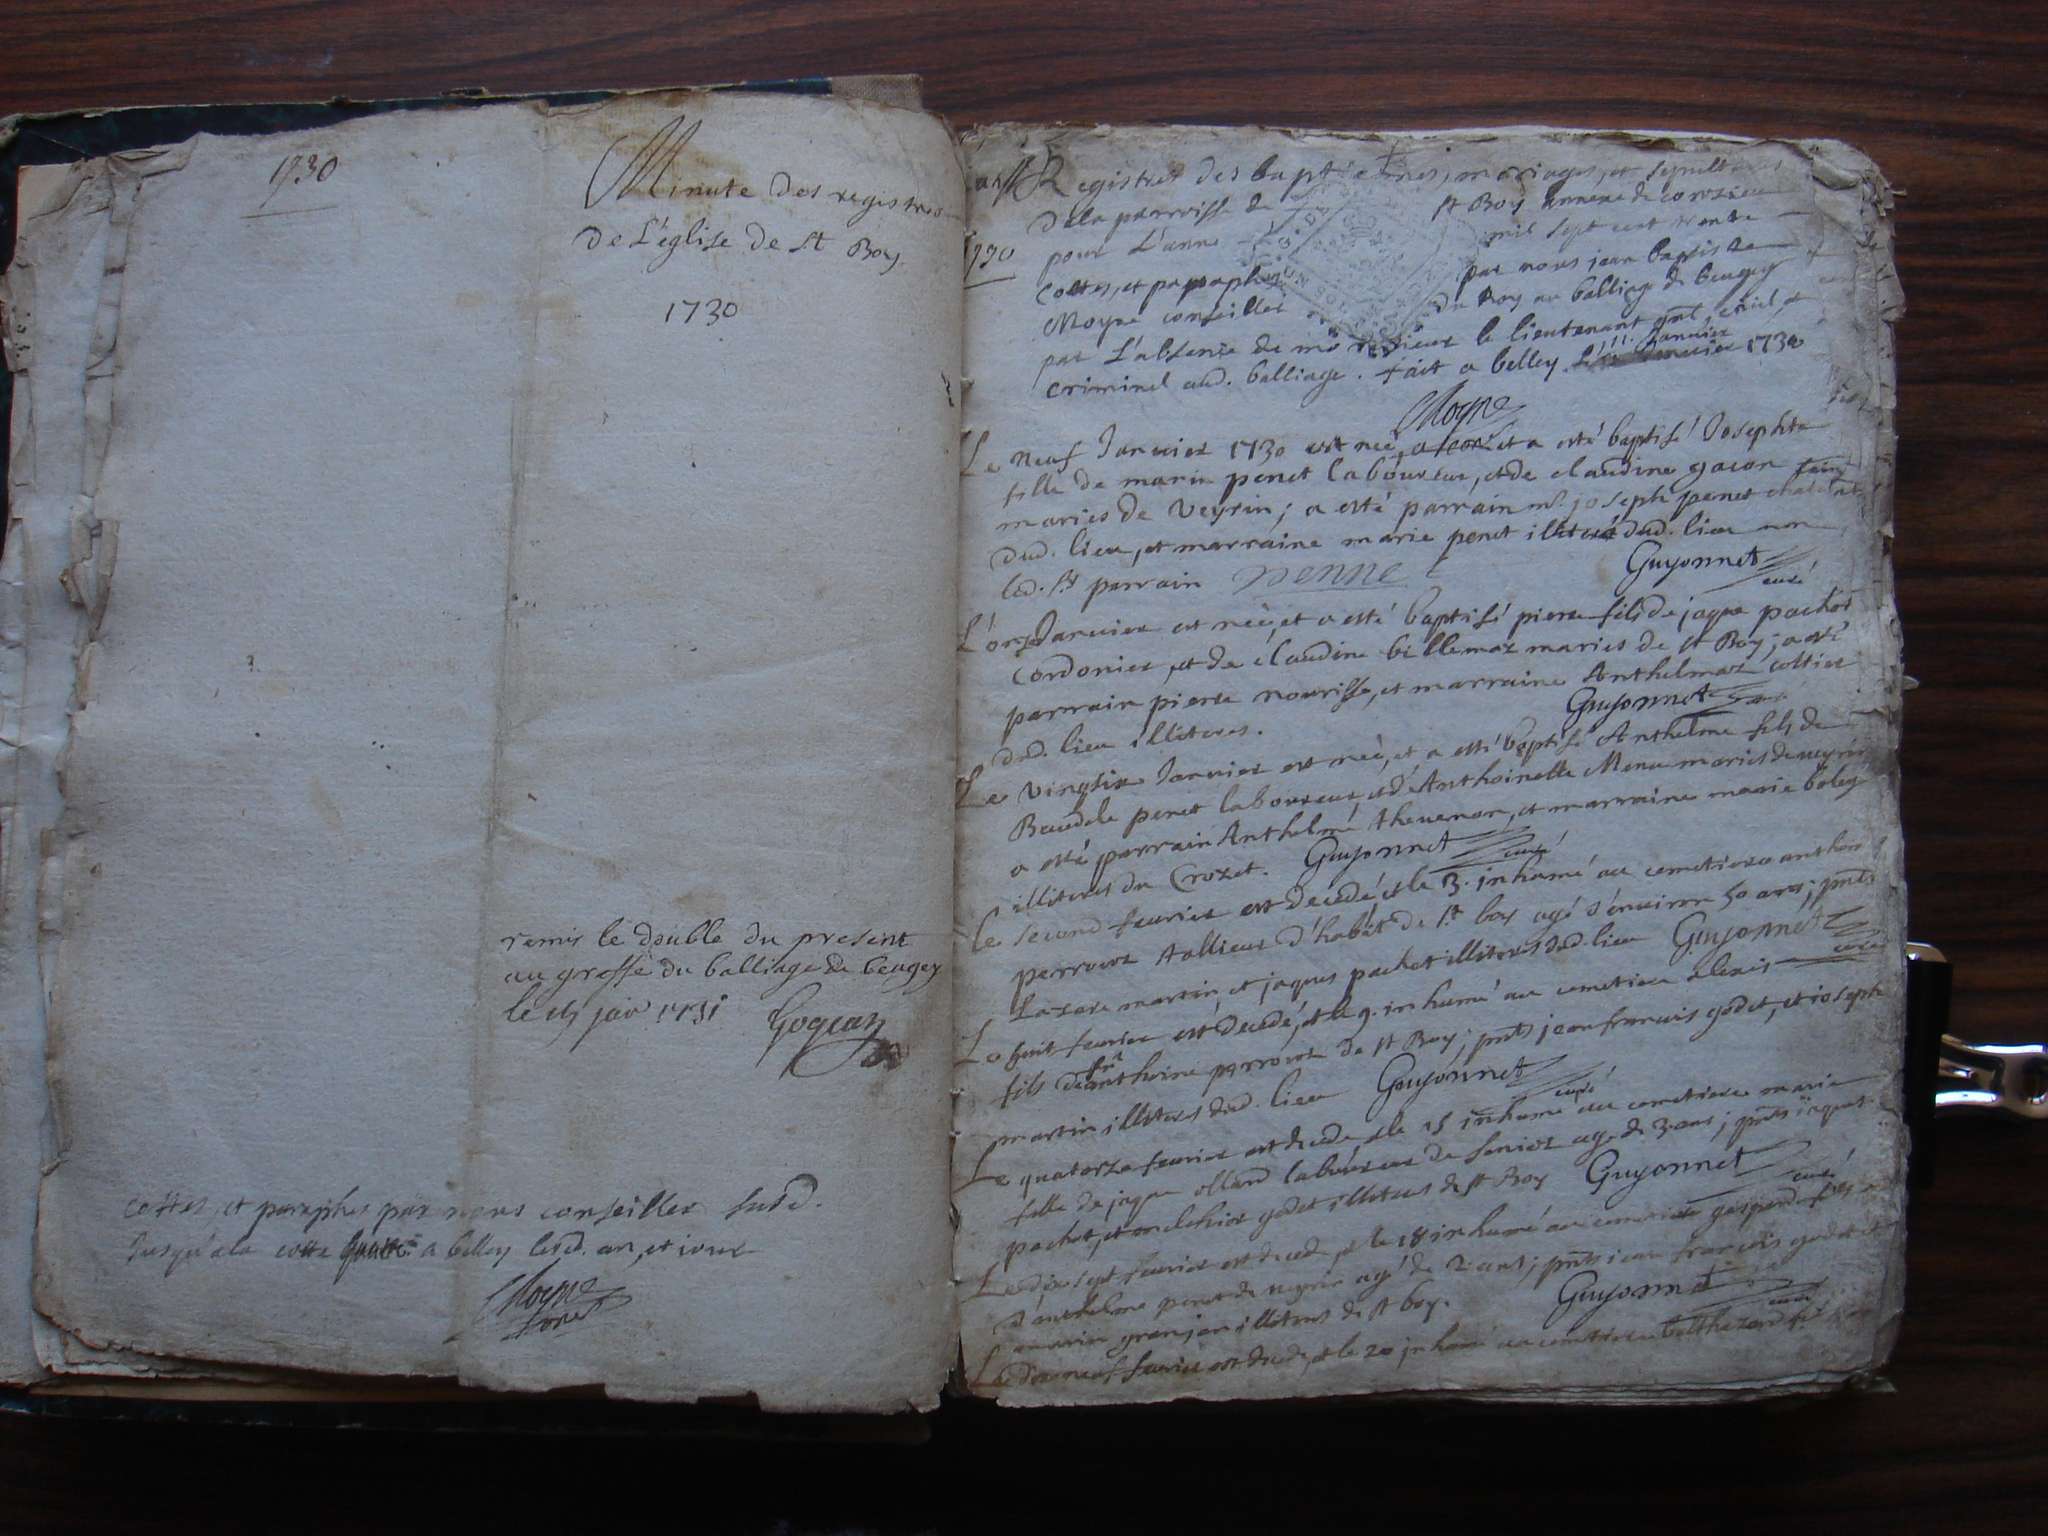 1730
Minute des registres
De L'église de St Boy.
1730
remis le double du present
au greffe du balliage de beugey
le 15 janv 1731
cottes, et paraphes par nous conseiller susd.
Jusqu'a la cotte quatre a belley lesd. an, et iour
Moyne
Registres des baptiesmes, mariages, et sepultures
De la parroisse de St Boy annexe de
1730
pour L'anne mil sept cent trente
Cottes, et paraphes par nous jean baptiste
Moyne conseiller du Roy au balliage de beugey
par L'absence de monsieur le lieutenant gnl, civil, et
criminel aud. balliage. fait a belley L'11. Janvier 1730
Moyne
Le neuf Janvier 1730 est née, et a esté baptisé Josephte
fille de marin penet laboureur, et de claudine gacon
maries de veyrin; a esté parrain mr. joseph penet
dud. lieu, et marraine marie penet dud. lieu non
led. sr parrain penne Guyonnet curé
L'onze Janvier est née, et a esté baptisé pierre fils de jaque pachot
cordonier, et de claudine billemaz maries de st Boy; a esté
parrain pierre nourisse, et marraine Anthelmaz cottier
dud. lieu illiteres. Guyonnet curé
Le vingtsix Janvier est née, et a esté baptisé Anthelme fils de
Baudele penet laboureur, et d'Anthoinette Menu maries de veyrin
a esté parrain Anthelme thevenon, et marraine marie boley
illiteres du Crozet. Guyonnet curé
Le second fevrier est decedé, et le 3. inhumé au cemetiere anthoine
perrour tallieur d'habit de st boy agé d'environ 50 ans; pnts
Lazare martin, et jaques pachot illiteres dud. lieu Guyonnet curé
Le huit fevrier est decedé, et le 9. inhumé au cemetiere alexis
fils de fû anthoine perrour de st Boy; pnts jean francois godet, et ioseph
martin illiteres dud. lieu Guyonnet curé
Le quatorze fevrier est decede, et le 15 inhume au cemetiere marie
fille de jaque olland laboureur de age de 3 ans; pnts iaques
pachot, et melchior godet illiteres de st Boy Guyonnet curé
Le dix sept fevrier est decede, et le 18 inhumé au cemetiere gaspard fils
d'anthelme penet de veyrin agé de 2 ans; pnts iean francois godet et
marin granjon illiteres de st boy. Guyonnet curé
Le dixneuf fevrier est decede, et le 20 inhumé au cemetiere balthazard